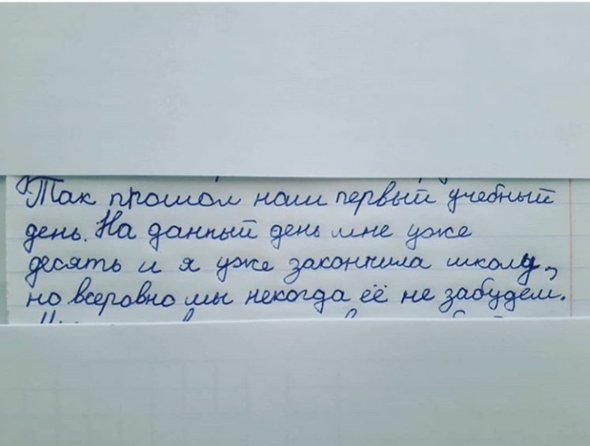 Так прошол наш первый учебный
день. На данный день мне уже
десять и я уже закончила школу,
но всеровно мы некогда её не забудем.